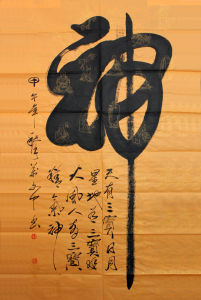 神
天有三寶日月
星地有三寶水
火風人有三寶
精氣神
甲午年